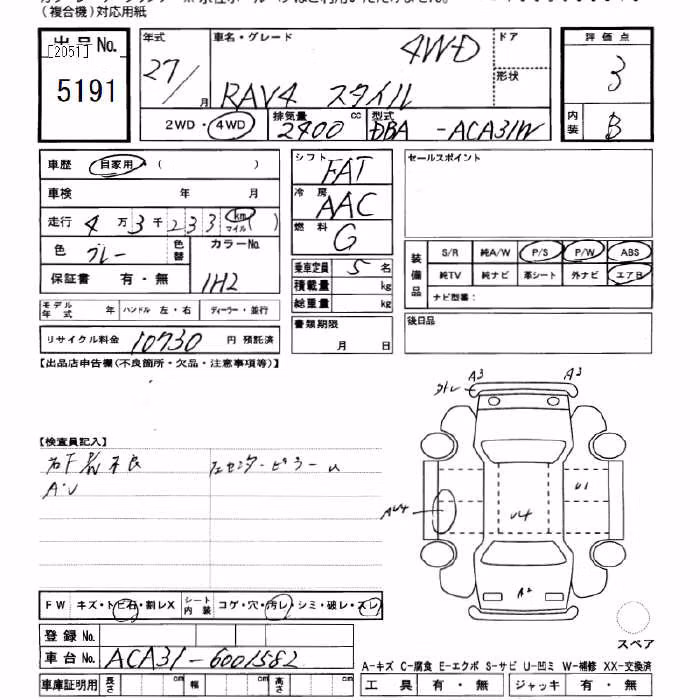 （複合機）対応用紙
出品 No.
[2051]
5191
年式
27/ 月
車名・グレード
4WD
RAV4 スタイル
ドア
形状
2WD・4WD
排気量
2400 cc
型式
DBA -ACA31W
評価点
3
内装
B
車歴 自家用 ( )
車検 年 月
走行 4 万 3 千 2 3 3 km マイル ( )
色 グレー 色替
カラーNo.
1H2
保証書 有・無
モデル年式 年 ハンドル 左・右 ディーラー・並行
リサイクル料金 10730 円 預託済
シフト FAT
冷房 AAC
燃料 G
乗車定員 5 名
積載量 kg
総重量 kg
書類期限
月 日
セールスポイント
装備品
S/R 純A/W P/S P/W ABS
純TV 純ナビ 革シート 外ナビ エアB
ナビ型番：
後日品
【出品店申告欄(不良箇所・欠品・注意事項等)】
【検査員記入】
A・U
FW キズ・トビ石・割レX シート内装 コゲ・穴・汚レ・シミ・破レ・スレ
登録 No.
車台 No. ACA31-6001582
車庫証明用 長さ cm 幅 cm 高さ cm
A3 A3
U1
U4
A2
スペア
A-キズ C-腐食 E-エクボ S-サビ U-凹ミ W-補修 XX-交換済
工具 有・無 ジャッキ 有・無